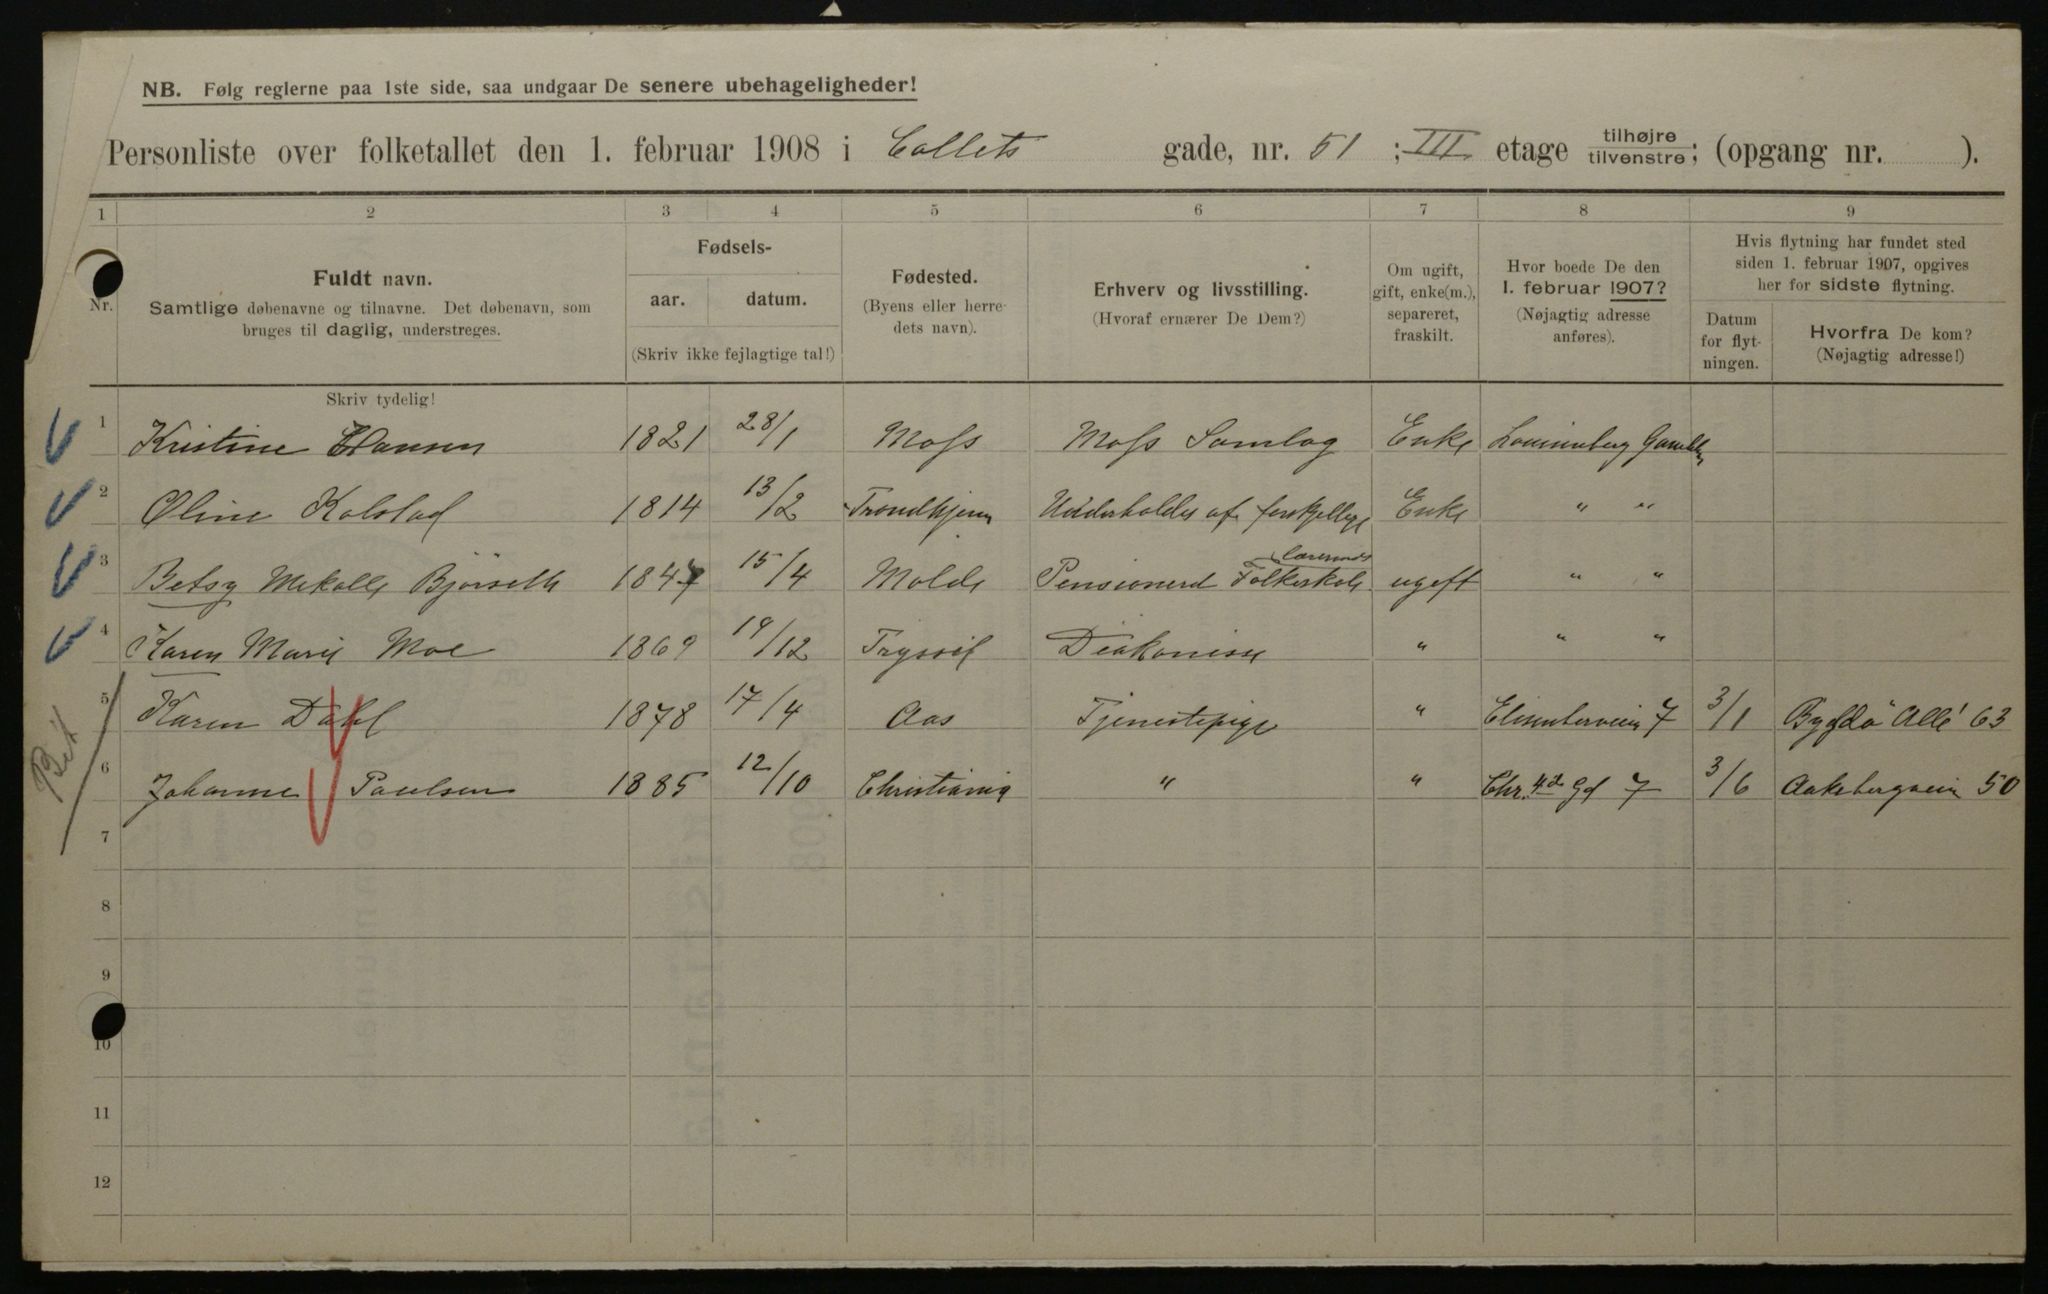 NB. Følg reglerne paa 1ste side, saa undgaar De senere ubehageligheder!
Personliste over folketallet den 1. februar 1908 i Collets gade, nr. 51 ; III etage tilhøjre/tilvenstre; (opgang nr. ).
1 2 3 4 5 6 7 8 9
Nr.
Fuldt navn.
Samtlige døbenavne og tilnavne. Det døbenavn, som
bruges til daglig, understreges.
Skriv tydelig!
Fødsels-
aar. datum.
(Skriv ikke fejlagtige tal!)
Fødested.
(Byens eller herre-
dets navn).
Erhverv og livsstilling.
(Hvoraf ernærer De Dem?)
Om ugift,
gift, enke(m.),
separeret,
fraskilt.
Hvor boede De den
1. februar 1907?
(Nøjagtig adresse
anføres).
Hvis flytning har fundet sted
siden 1. februar 1907, opgives
her for sidste flytning.
Datum
for flyt-
ningen.
Hvorfra De kom?
(Nøjagtig adresse!)
1 Kristine Hansen 1821 28/1 Moss Moss Samlag Enke
2 Oline Kolstad 1814 13/2 Trondhjem Underholdes af Enke " "
3 Betsy Bjørseth 1847 15/4 Molde Pensionerd Folkeskole ugift " "
4 Karen Marie Moe 1869 19/12 Tryssil Diakonisse " " "
5 Karen Dahl 1878 17/4 Aas Tjenestepige " 7 3/1 Bygdö Allé 63
6 Johanne Paulsen 1885 12/10 Christiania " " Chr. 4de Gd 7 3/6 Aakebergveien 50
7
8
9
10
11
12